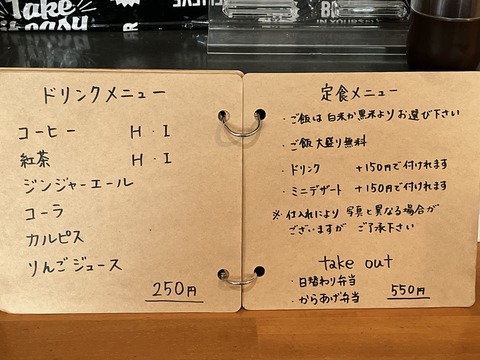 Take
it easy
ドリンクメニュー
コーヒー H・I
紅茶 H・I
ジンジャーエール
コーラ
カルピス
りんごジュース
250円
定食メニュー
・ご飯は白米か黒米よりお選び下さい
・ご飯大盛り無料
・ドリンク +150円で付けれます
・ミニデザート +150円で付けれます
※仕入れにより写真と異なる場合が
ございますが ご了承下さい
take out
・日替わり弁当
・からあげ弁当 550円